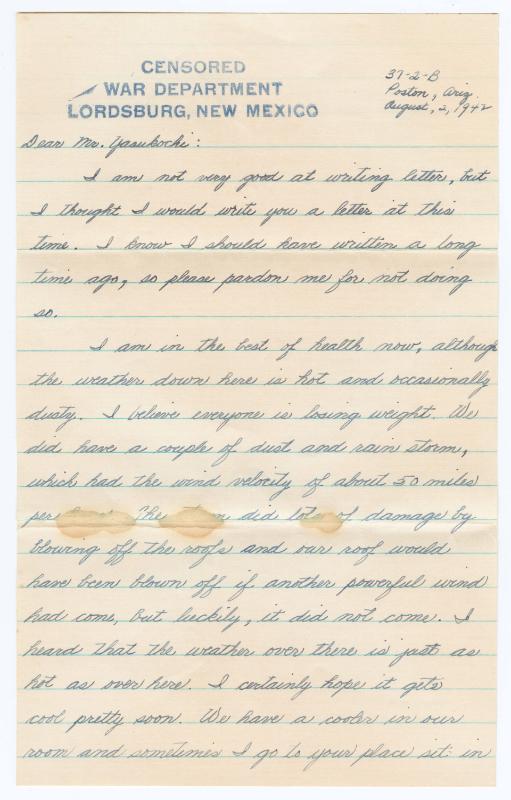 CENSORED
WAR DEPARTMENT
LORDSBURG, NEW MEXICO
37-2-B
Poston, Ariz.
August, 2, 1942
Dear Mr. Yasukochi:
I am not very good at writing letter, but
I thought I would write you a letter at this
time. I know I should have written a long
time ago, so please pardon me for not doing
so.
I am in the best of health now, although
the weather down here is hot and occasionally
dusty. I believe everyone is losing weight. We
did have a couple of dust and rain storm,
which had the wind velocity of about 50 miles
per The did lots of damage by
blowing off the roofs and our roof would
have been blown off if another powerful wind
had come, but luckily, it did not come. I
heard that the weather over there is just as
hot as over here. I certainly hope it gets
cool pretty soon. We have a cooler in our
room and sometimes I go to your place sit in